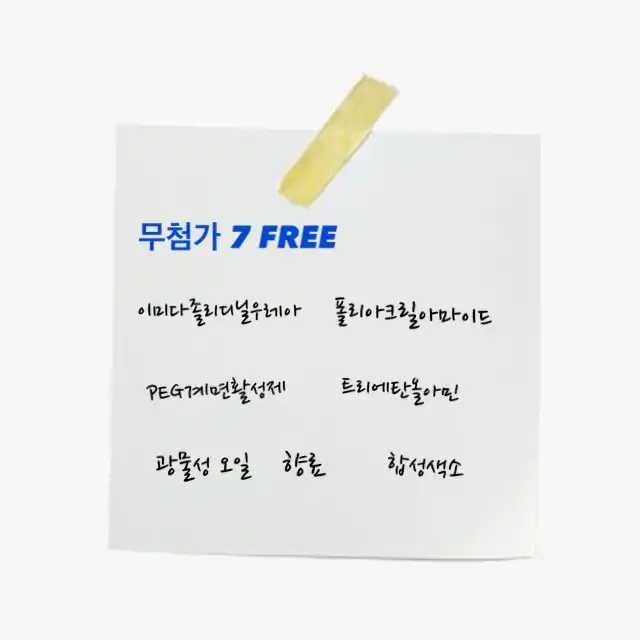 무첨가 7 FREE
이미다졸리디닐우레아 폴리아크릴아마이드
PEG계면활성제 트리에탄올아민
광물성 오일 향료 합성색소